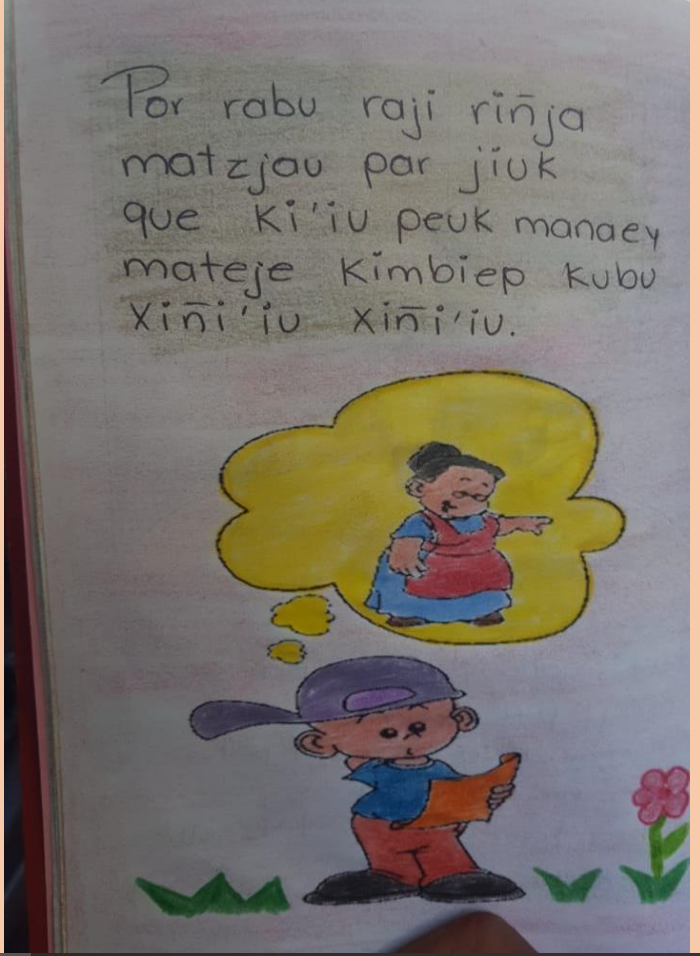 Por rabu raji riñja
matzjau par jiuk
que ki'iu peuk manaey
mateje kimbiep kubu
xiñi'iu xiñi'iu.